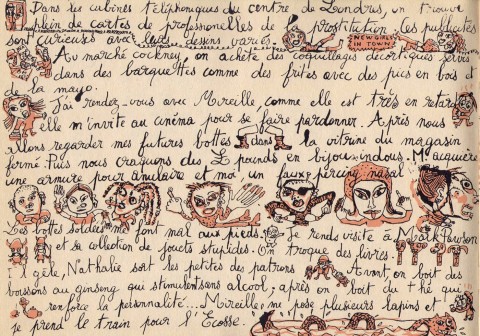 Dans les cabines téléphoniques du centre de Londres, on trouve
plein de cartes de professionelles de la prostitution. Ces publicités
sont curieuses avec leurs dessins variés. NEW GIRL IN TOWN
Au marché cockney, on achète des coquillages décortiqués servis
dans des barquettes comme des frites avec des pics en bois et
de la mayo.
J'ai rendez-vous avec Mireille, comme elle est très en retard
elle m'invite au cinéma pour se faire pardonner. Après nous
allons regarder mes futures bottes dans la vitrine du magasin
fermé. Puis nous craquons des £ pounds en bijoux indous. M. acquière
une armure pour anulaire et moi un faux piercing nasal.
Les bottes soldées me font mal aux pieds. Je rends visite à Mark Pawson
et sa collection de jouets stupides. On troque des livres.
Il gèle, Nathalie sort les petites des patrons. Avant, on boit des
boissons au ginseng qui stimulent sans alcool; après on boit du thé qui
renforce la personnalité... Mireille me pose plusieurs lapins et
je prend le train pour l'Ecosse.